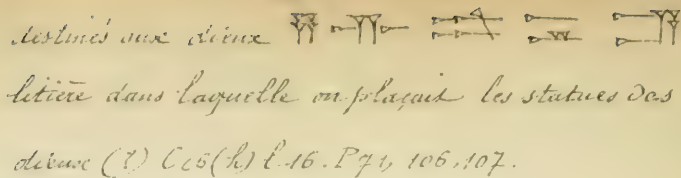 destinés aux dieux
litière dans laquelle on plaçait les statues des
dieux (?) C25(h) l. 16. P 71, 106, 107.